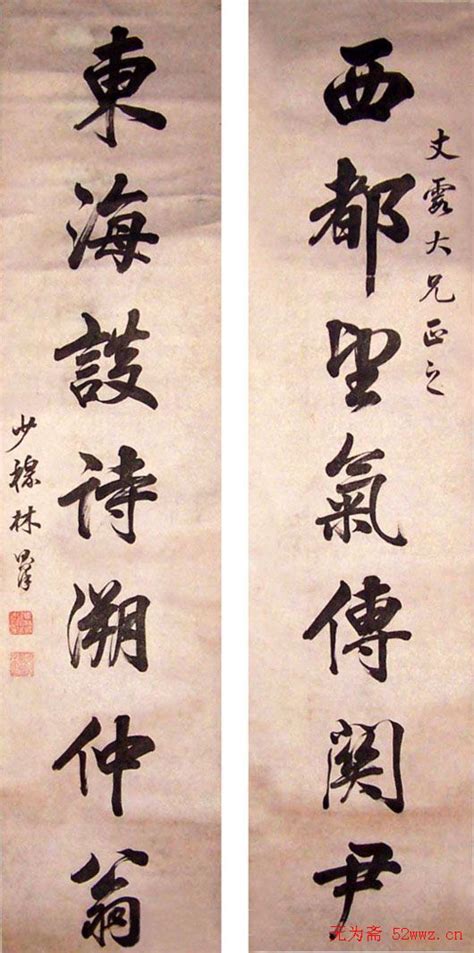 霞大兄正之
西都望氣傳關尹
東海詩溯仲翁
少穆林則徐
无为斋 52wwz.cn